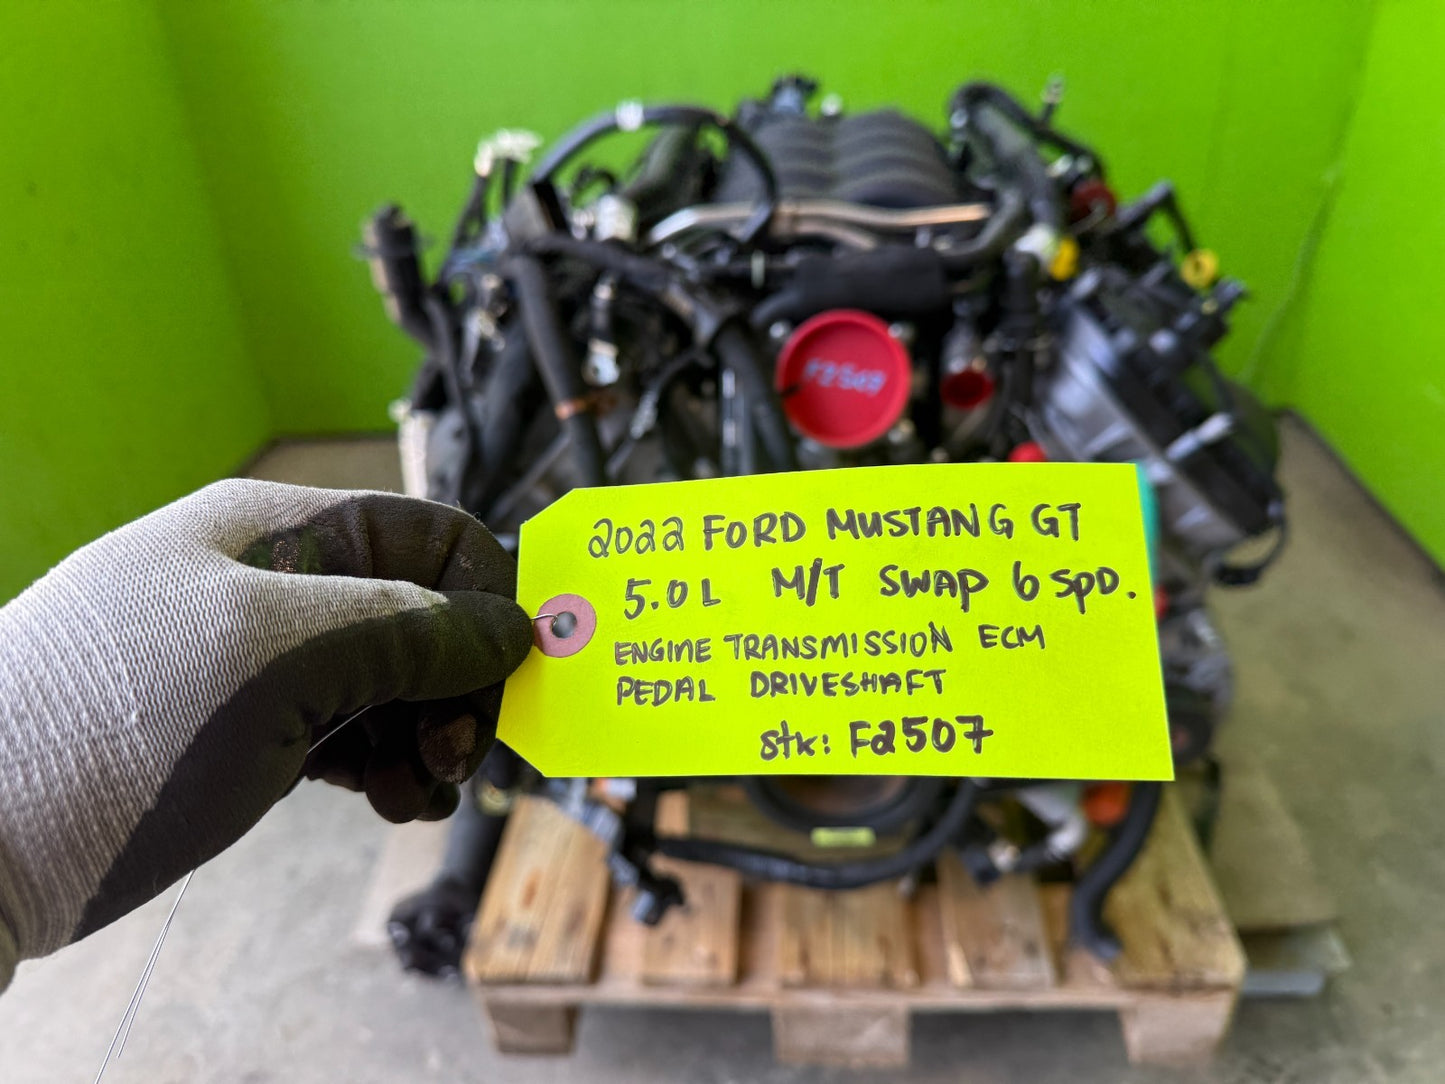 F2507
2022 FORD MUSTANG GT
5.0L M/T SWAP 6 SPD.
ENGINE TRANSMISSION ECM
PEDAL DRIVESHAFT
stk: F2507